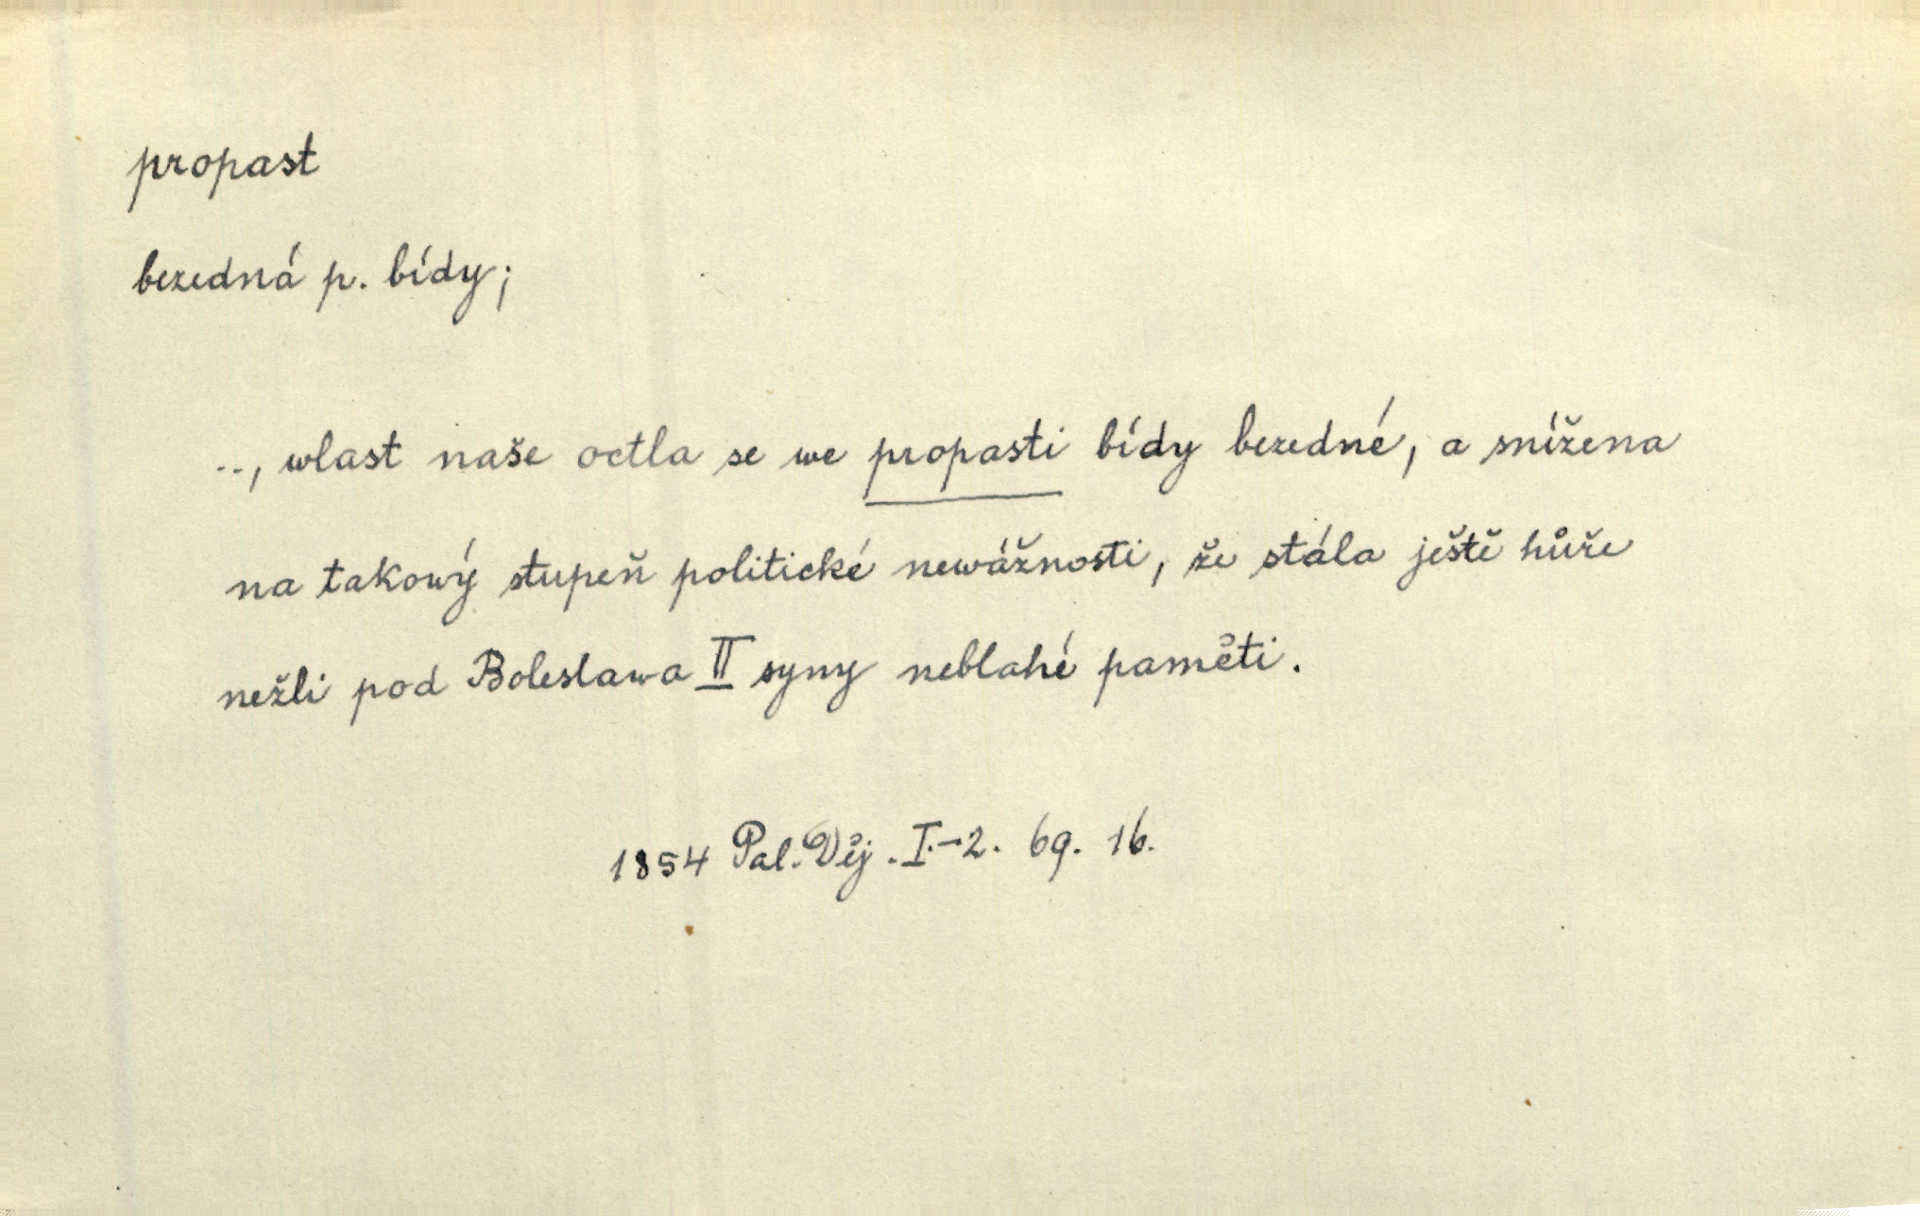 propast
bezedná p. bídy;
.., wlast naše octla se we propasti bídy bezedné, a snížena
na takowý stupeň politické newážnosti, že stála ještě hůře
nežli pod Boleslawa II syny neblahé paměti.
1854 Pal. Děj. I.-2. 69. 16.